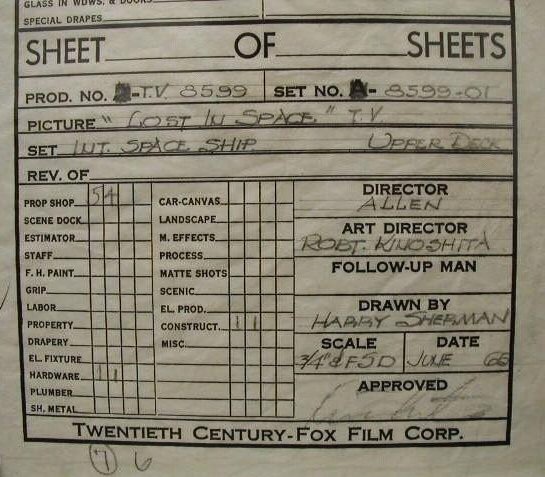 GLASS IN WDWS. & DOORS
SPECIAL DRAPES
SHEET OF SHEETS
PROD. NO. -T.V. 8599 SET NO. A- 8599-01
PICTURE "LOST IN SPACE" T.V.
SET INT. SPACE SHIP. UPPER DECK
REV. OF
PROP SHOP 54 CAR-CANVAS DIRECTOR
SCENE DOCK LANDSCAPE ALLEN
ESTIMATOR M. EFFECTS ART DIRECTOR
STAFF PROCESS ROBT. KINOSHITA
F. H. PAINT MATTE SHOTS FOLLOW-UP MAN
GRIP SCENIC
LABOR EL. PROD. DRAWN BY
PROPERTY CONSTRUCT. 11 HARRY SHERMAN
DRAPERY MISC. SCALE DATE
EL. FIXTURE 3/4" & FSD JUNE 65
HARDWARE 11 APPROVED
PLUMBER
SH. METAL
TWENTIETH CENTURY-FOX FILM CORP.
7 6